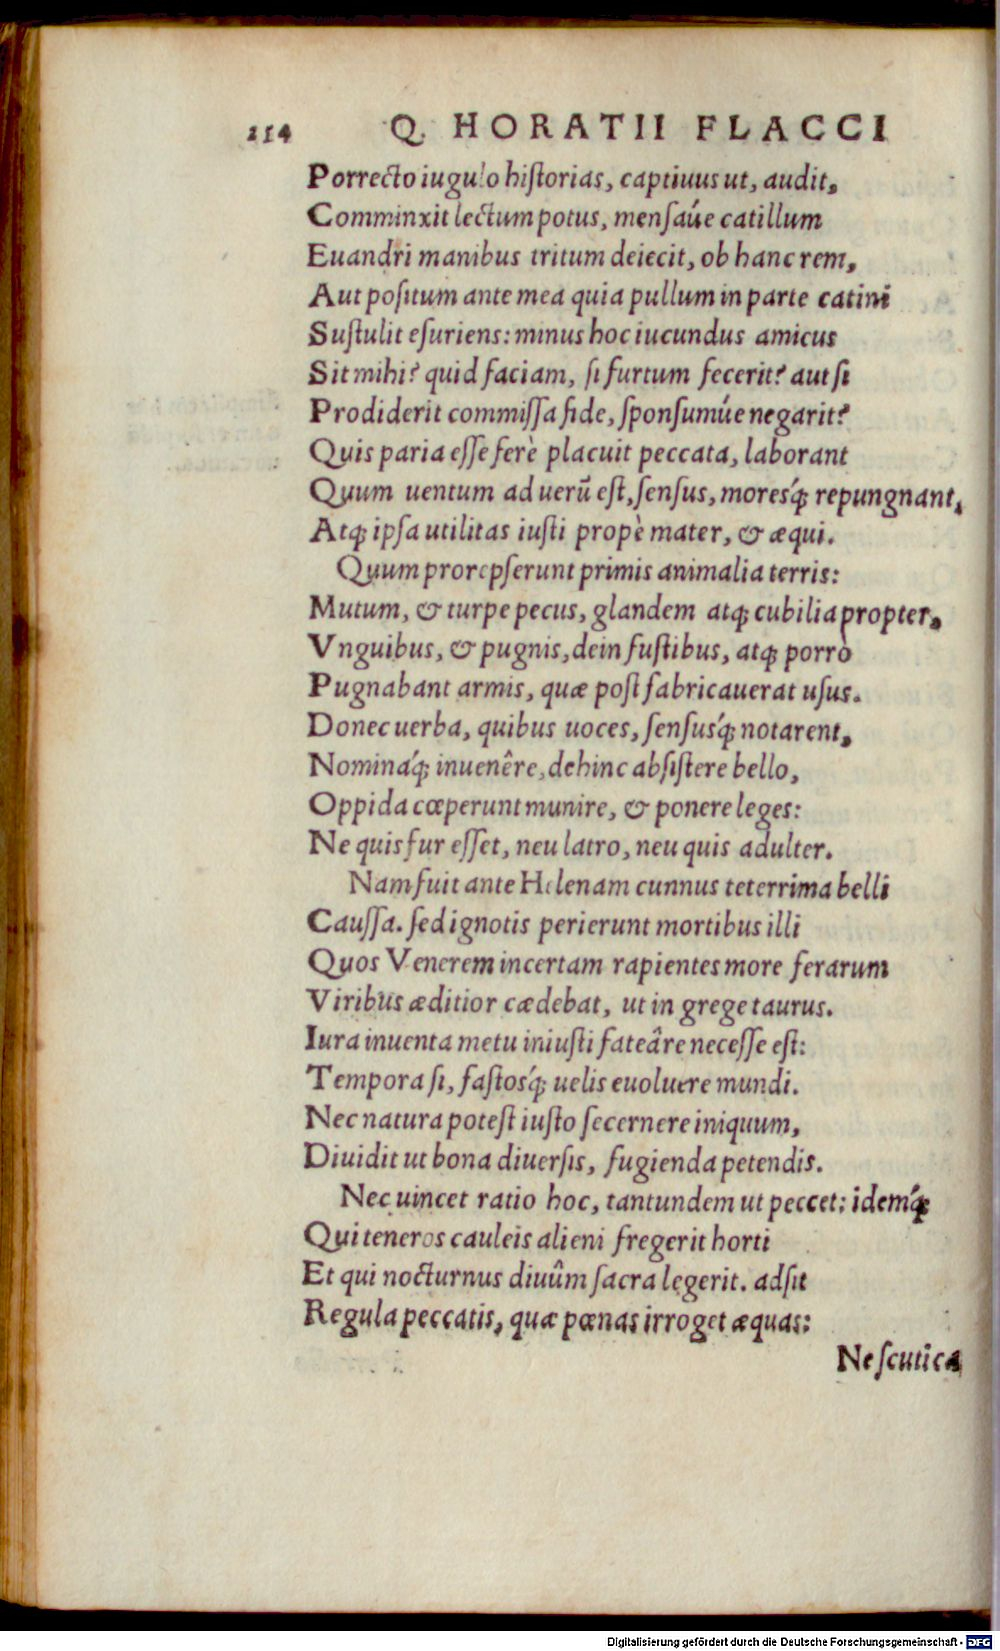 214 Q. HORATII FLACCI
Porrecto iugulo historias, captiuus ut, audit,
Comminxit lectum potus, mensáue catillum
Euandri manibus tritum deiecit, ob hanc rem,
Aut positum ante mea quia pullum in parte catini
Sustulit esuriens: minus hoc iucundus amicus
Sit mihi? quid faciam, si furtum fecerit? aut si
Prodiderit commissa fide, sponsumúe negarit?
Quis paria esse ferè placuit peccata, laborant
Quum uentum ad uerū est, sensus, moresq́; repungnant,
Atq; ipsa utilitas iusti propè mater, & æqui.
Quum prorepserunt primis animalia terris:
Mutum, & turpe pecus, glandem atq; cubilia propter,
Vnguibus, & pugnis, dein fustibus, atq; porrò
Pugnabant armis, quæ post fabricauerat usus.
Donec uerba, quibus uoces, sensusq́; notarent,
Nominaq́; inuenêre, dehinc absistere bello,
Oppida cœperunt munire, & ponere leges:
Ne quis fur esset, neu latro, neu quis adulter.
Nam fuit ante Helenam cunnus teterrima belli
Caussa. sed ignotis perierunt mortibus illi
Quos Venerem incertam rapientes more ferarum
Viribus æditior cædebat, ut in grege taurus.
Iura inuenta metu iniusti fateâre necesse est:
Tempora si, fastosq́; uelis euoluere mundi.
Nec natura potest iusto secernere iniquum,
Diuidit ut bona diuersis, fugienda petendis.
Nec uincet ratio hoc, tantundem ut peccet: idemq́;
Qui teneros cauleis alieni fregerit horti
Et qui nocturnus diuûm sacra legerit. adsit
Regula peccatis, quæ pœnas irroget æquas:
Ne scutica
Digitalisierung gefördert durch die Deutsche Forschungsgemeinschaft - DFG